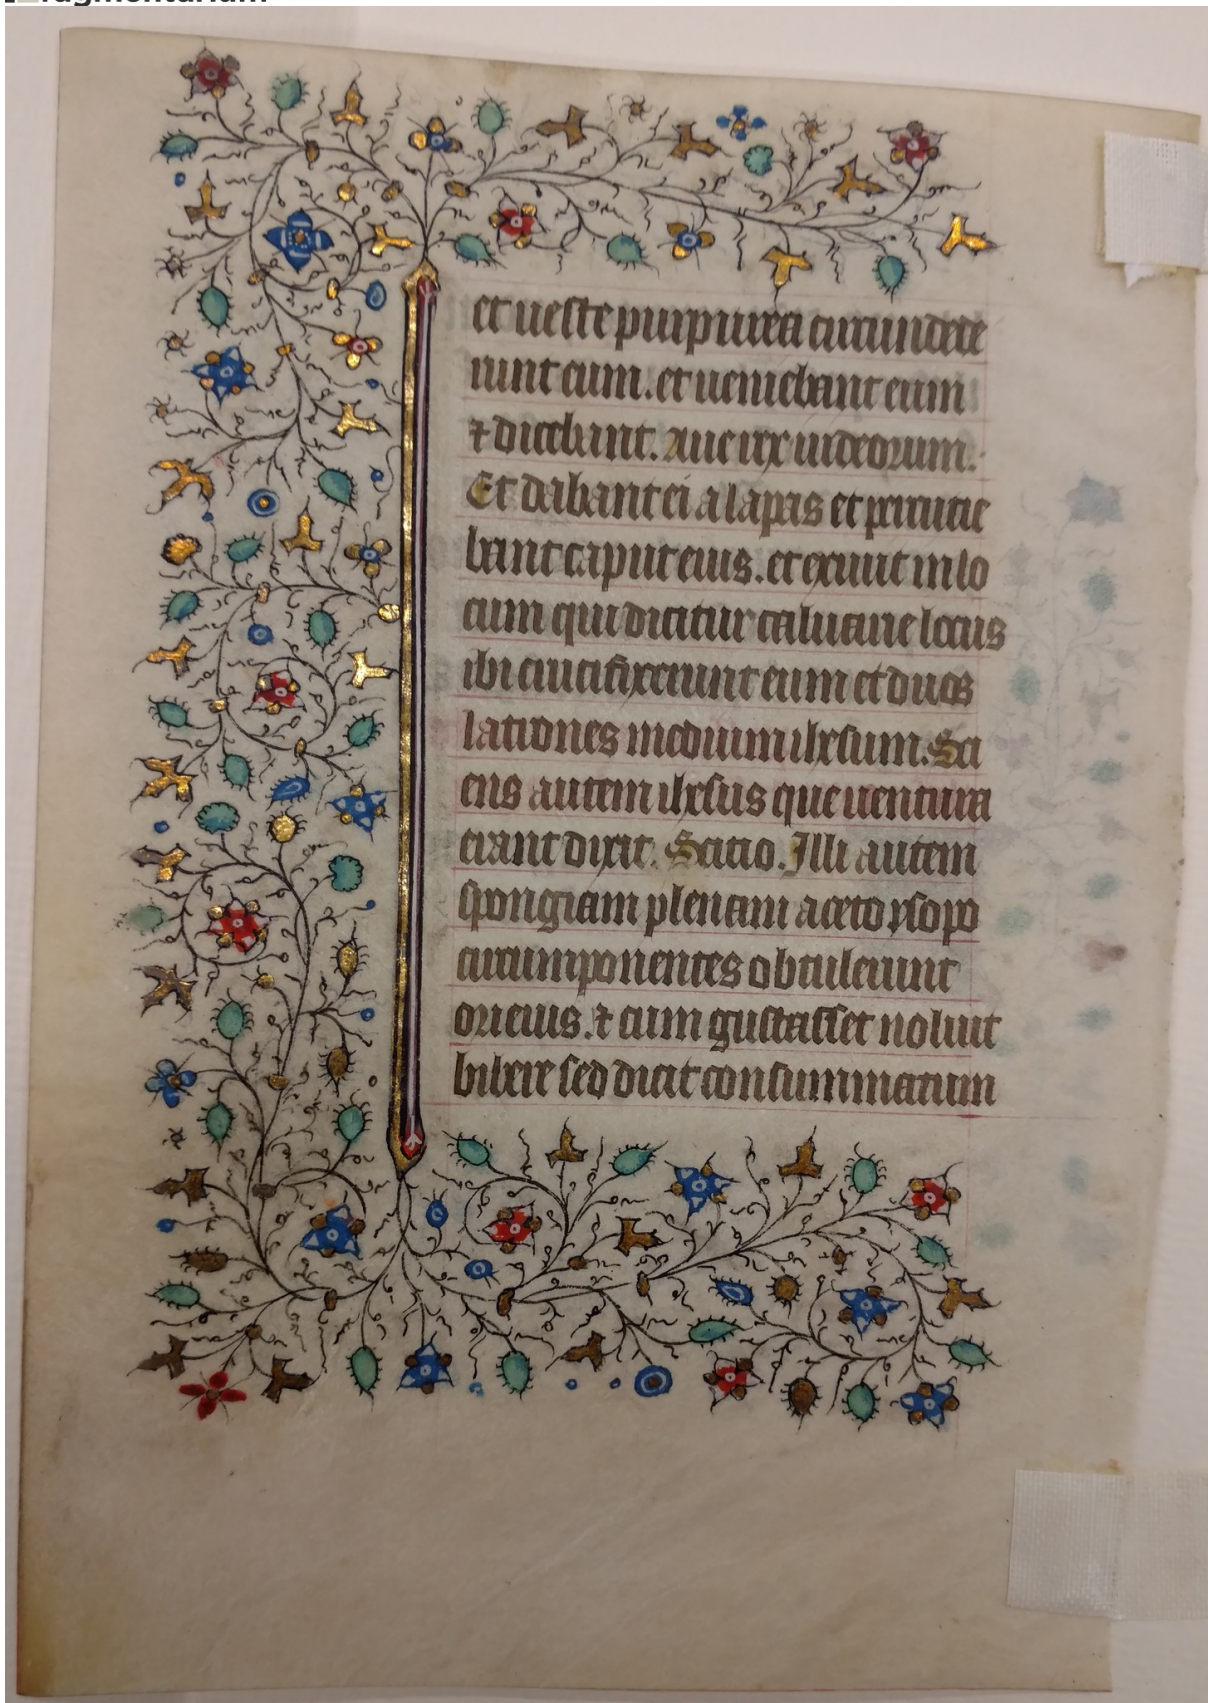 et ueste purpurea circumdede
runt eum. et ueniebant eum
⁊ dicebant. Aue rex iudeorum.
Et dabant ei alapas et percucie
bant caput eius. et exiuit in lo
cum qui dicitur caluarie locus
ibi crucifixerunt eum et duos
latrones medium ihesum. Sci
ens autem ihesus que uentura
erant dixit. Scicio. Illi autem
spongiam plenam aceto ysopo
circumponentes obtulerunt
ori eius. ⁊ cum gustasset noluit
bibere sed dicit consummatum